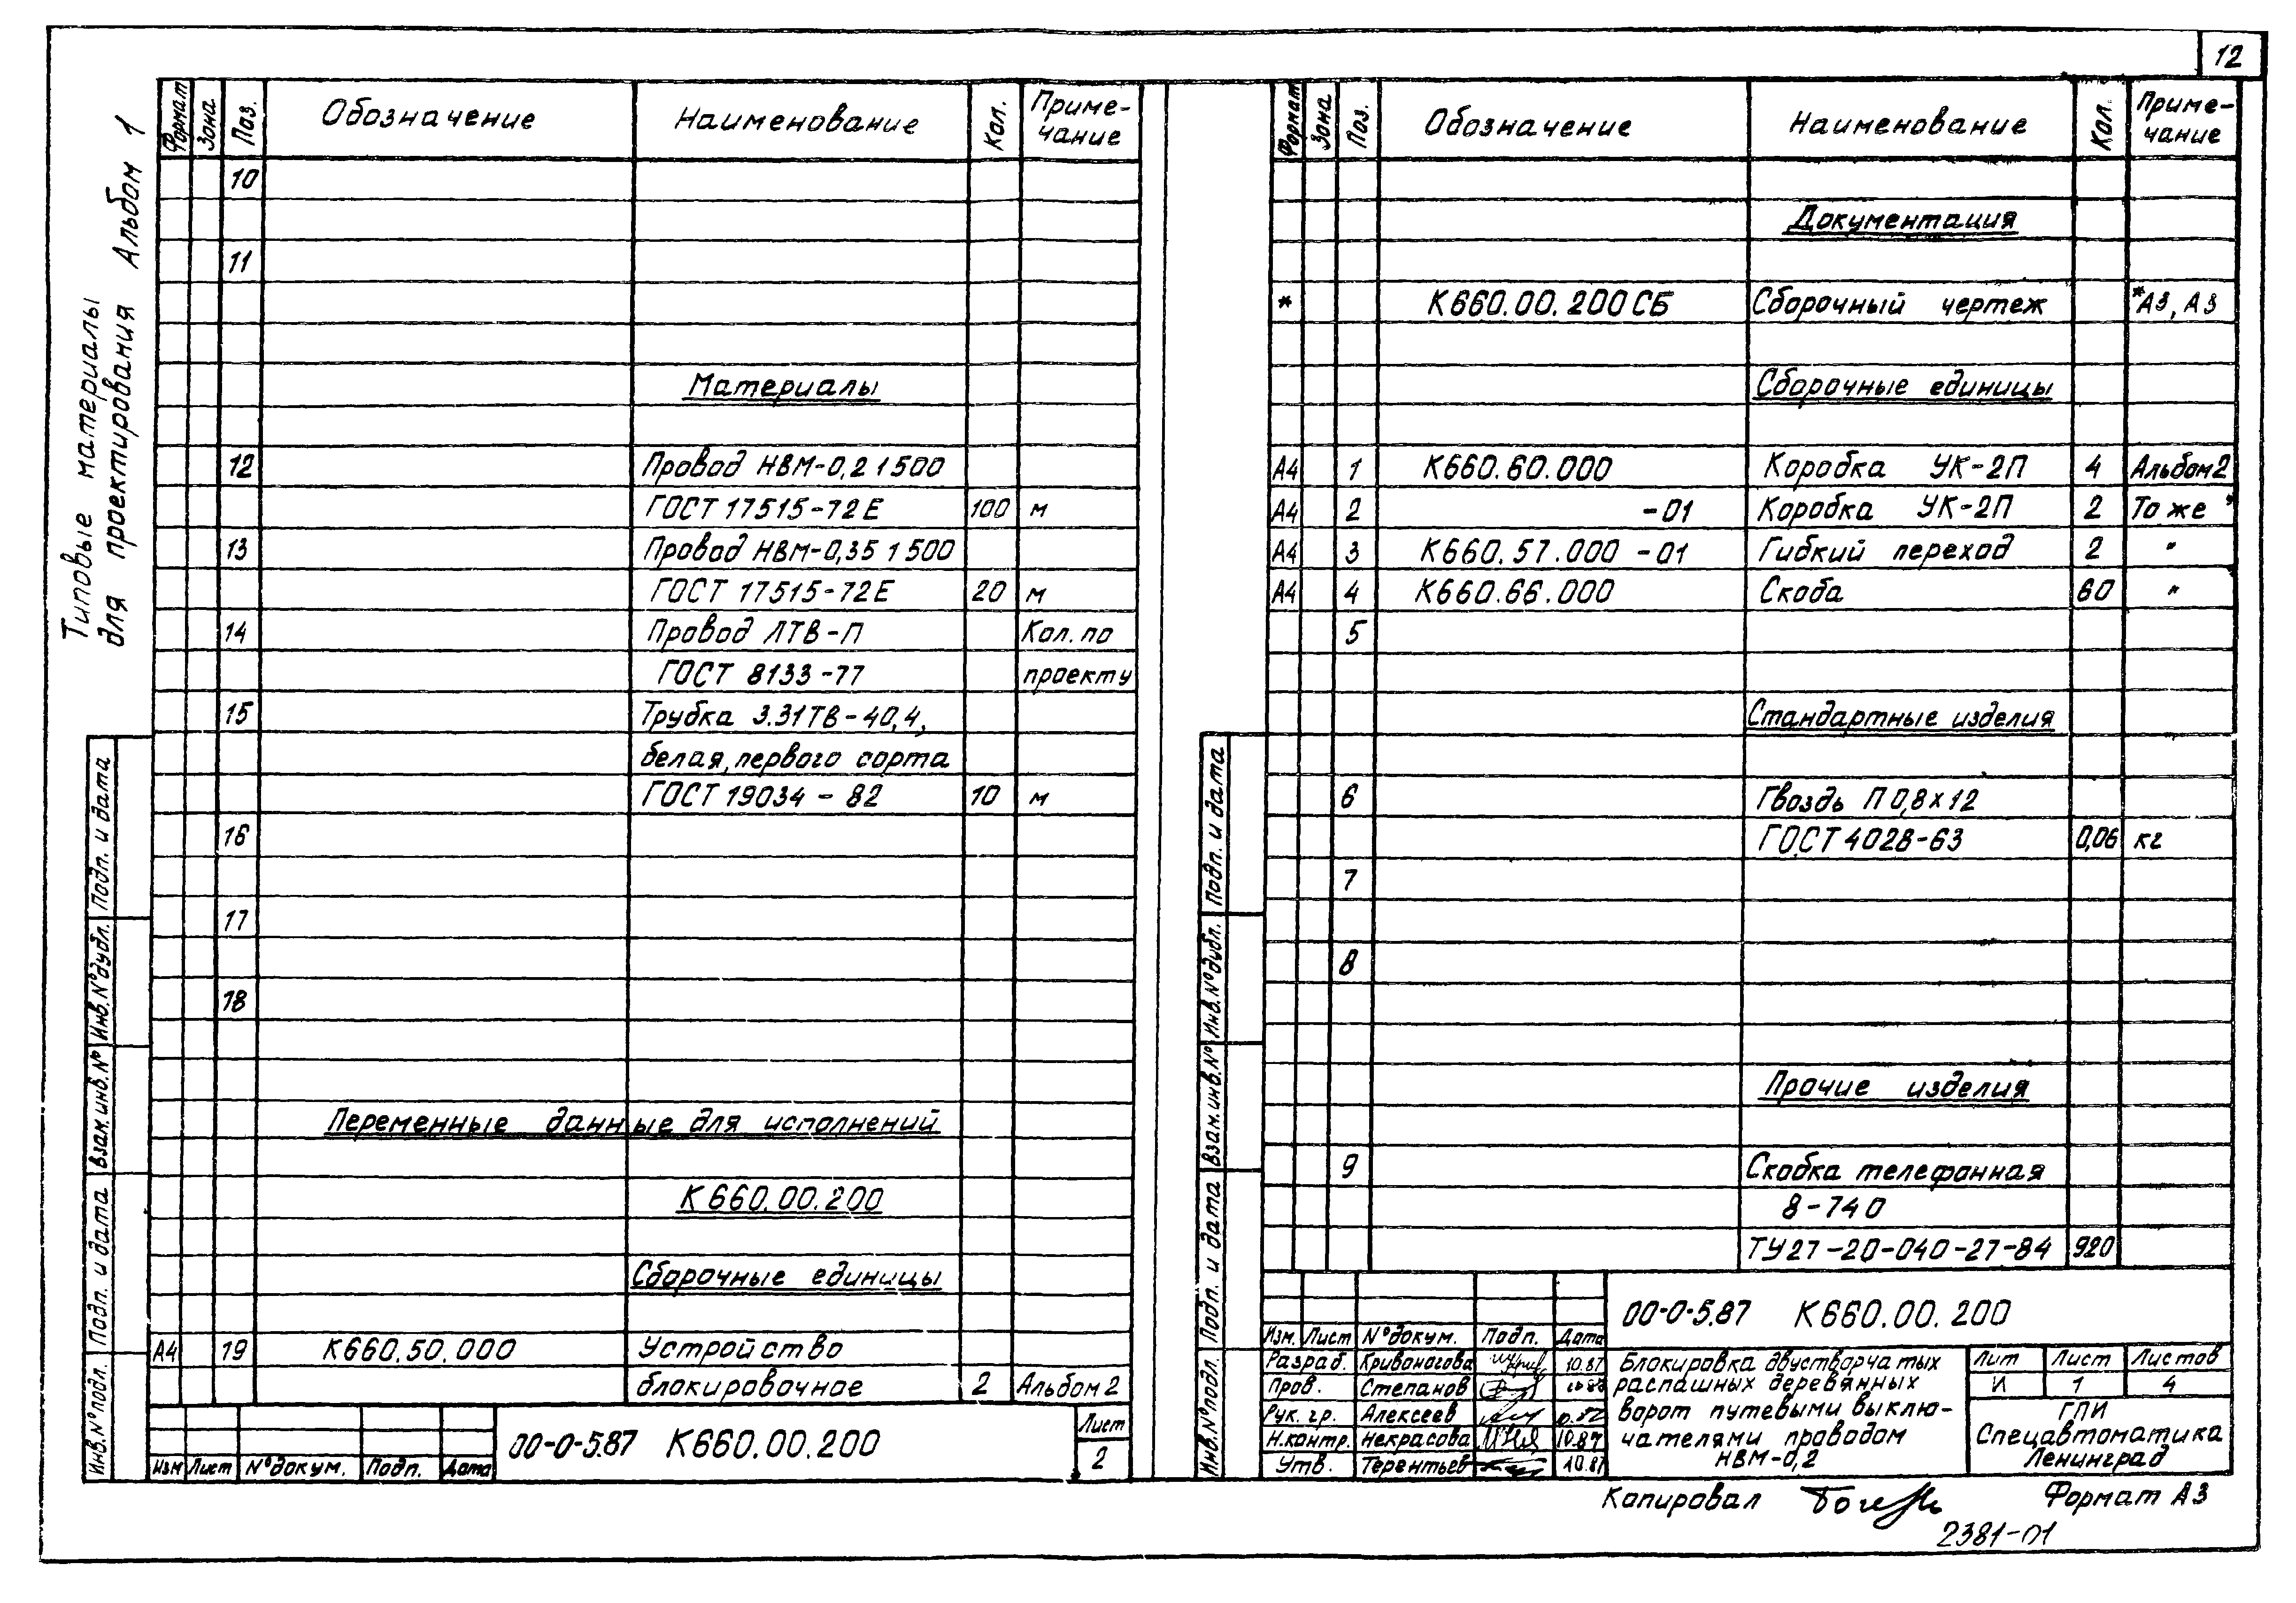 12
Типовые материалы
для проектирования Альбом 1
Формат Зона Поз. Обозначение Наименование Кол. Приме-
чание
10
11
Материалы
12 Провод НВМ-0,2 1 500
ГОСТ 17515-72Е 100 м
13 Провод НВМ-0,35 1 500
ГОСТ 17515-72Е 20 м
14 Провод ЛТВ-П Кол. по
ГОСТ 8133-77 проекту
15 Трубка 3.31ТВ-40,4,
белая, первого сорта
ГОСТ 19034-82 10 м
16
17
18
Переменные данные для исполнений
К660.00.200
Сборочные единицы
А4 19 К660.50.000 Устройство
блокировочное 2 Альбом 2
Инв.№подл. Подп. и дата Взам.инв.№ Инв.№дубл. Подп. и дата
Изм Лист №докум. Подп. Дата
00-0-5.87 К660.00.200
Лист
2
Формат Зона Поз. Обозначение Наименование Кол. Приме-
чание
Документация
* К660.00.200СБ Сборочный чертеж *А3, А3
Сборочные единицы
А4 1 К660.60.000 Коробка УК-2П 4 Альбом2
А4 2 -01 Коробка УК-2П 2 То же
А4 3 К660.57.000-01 Гибкий переход 2 "
А4 4 К660.66.000 Скоба 60 "
5
Стандартные изделия
6 Гвоздь П 0,8х12
ГОСТ 4028-63 0,06 кг
7
8
Прочие изделия
9 Скобка телефонная
8-740
ТУ27-20-040-27-84 920
Инв.№подл. Подп. и дата Взам.инв.№ Инв.№дубл. Подп. и дата
00-0-5.87 К660.00.200
Изм. Лист №докум. Подп. Дата
Разраб. Кривоногова 10.87
Пров. Степанов
Рук. гр. Алексеев
Н.контр. Некрасова 10.87
Утв. Терентьев 10.87
Блокировка двустворчатых
распашных деревянных
ворот путевыми выклю-
чателями проводом
НВМ-0,2
Лит Лист Листов
И 1 4
ГПИ
Спецавтоматика
Ленинград
Копировал Формат А3
2381-01